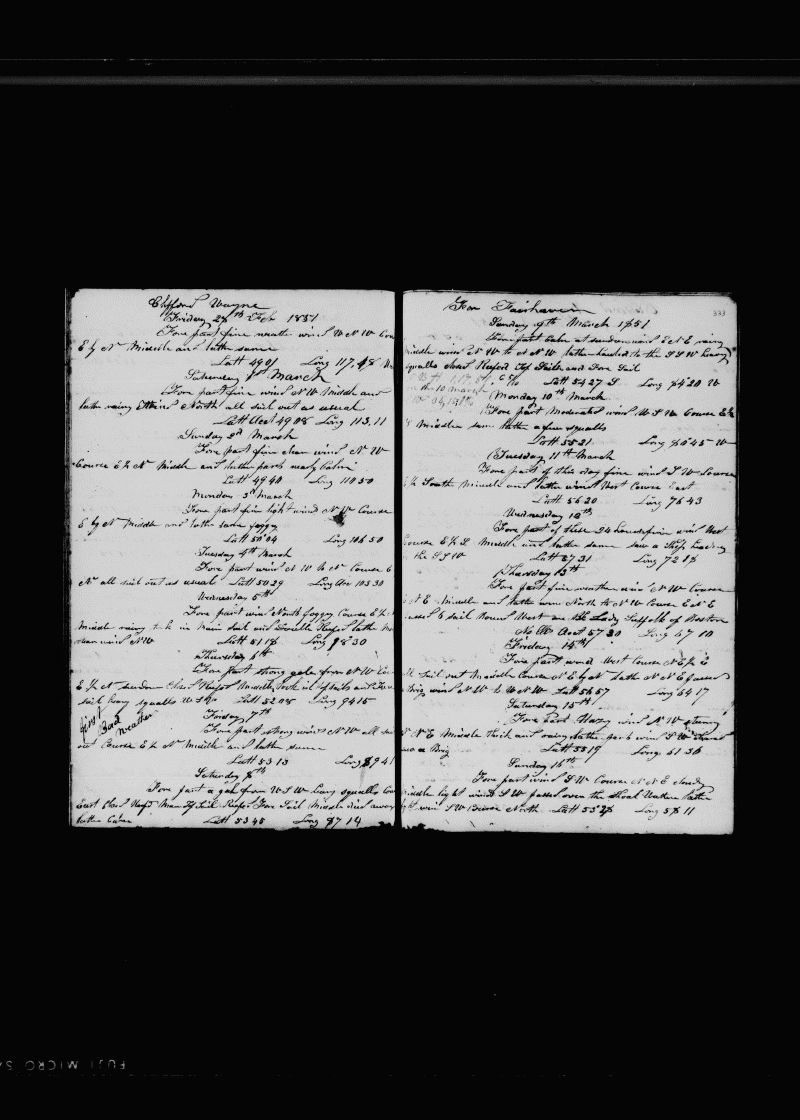 Clifford Wayne
Friday 28th Feb 1851
Fore part fine weather wind W N W Cou
E by N Middle and latter same
Latt 49 01 Long 117.48 W
Saturday 1st March
Fore part fine wind N W Middle and
latter rainy North all sail out as usual
Latt 49 08 Long 113.11
Sunday 2d March
Fore part fine clear wind N W
Course E ½ N Middle and latter parts nearly Calm
Latt 49 40 Long 110 50
Monday 3d March
Fore part fine light wind N W Course
E by N Middle and latter same foggy
Latt 50 04 Long 106 50
Tuesday 4th March
Fore part wind N W to N Course E
N all sail out as usual Latt 50 29 Long 103 30
Wednesday 5th
Fore part wind North foggy Course E ½
Middle rainy took in Main Sail and Double Reefed latter
wind N W Latt 51 18 Long 98 30
Thursday 6th
Fore part strong gale from N W
E ½ N Close Reefs Middle took in Top Sails and Fore
sail heavy squalls W S W Latt 52 08 Long 94 15
Friday 7th
first Bad Weather
Fore part strong wind N W all sail
out Course E ½ N Middle and latter same
Latt 53 13 Long 89 41
Saturday 8th
Fore part a gale from W S W heavy squalls Cou
East Close Reefd Main Top Sail Reefed Fore Sail Middle died away
latter Calm Latt 53 45 Long 87 14
For Fairhaven
333
Sunday 9th March 1851
Fore part Calm at sundown wind E N E rainy
Middle wind N W to N N W latter hauled to the S S W heavy
squalls Close Reefed Top Sails and Fore Sail
Latt 54 27 S Long 84 20 W
on the 10 March
Monday 10th March
Fore part Moderate wind W S W Course E ½
S Middle same latter a few squalls
Latt 55 21 Long 80 45 W
Tuesday 11th March
Fore part of this day fine wind S W Course
E ½ South Middle and latter wind West Course East
Latt 56 20 Long 76 43
Wednesday 12th
Fore part of these 24 hours fine wind West
Course E ½ S Middle and latter same Saw a Ship heading
to the S S W Latt 57 31 Long 72 18
Thursday 13th
Fore part fine weather wind N W Course
N E Middle and latter North to N W Course E N E
passed 6 sail Bound West Lady Suffolk of Boston
No Obs Acct 57 30 Long 67 10
Friday 14th
Fore part wind West Course N E ½ E
all Sail out Middle Course N E by N latter N N E
Brig wind N W to W N W Latt 56 57 Long 64 17
Saturday 15th
Fore Part Hazy wind N W
N N E Middle thick and rainy latter part wind S W
saw a Brig Latt 55 19 Long 61 36
Sunday 16th
Fore part wind S W Course N N E cloudy
Middle light wind S W passed over the Shoal Water latter
light wind S W Course North Latt 53 28 Long 58 11
FUJI MICRO